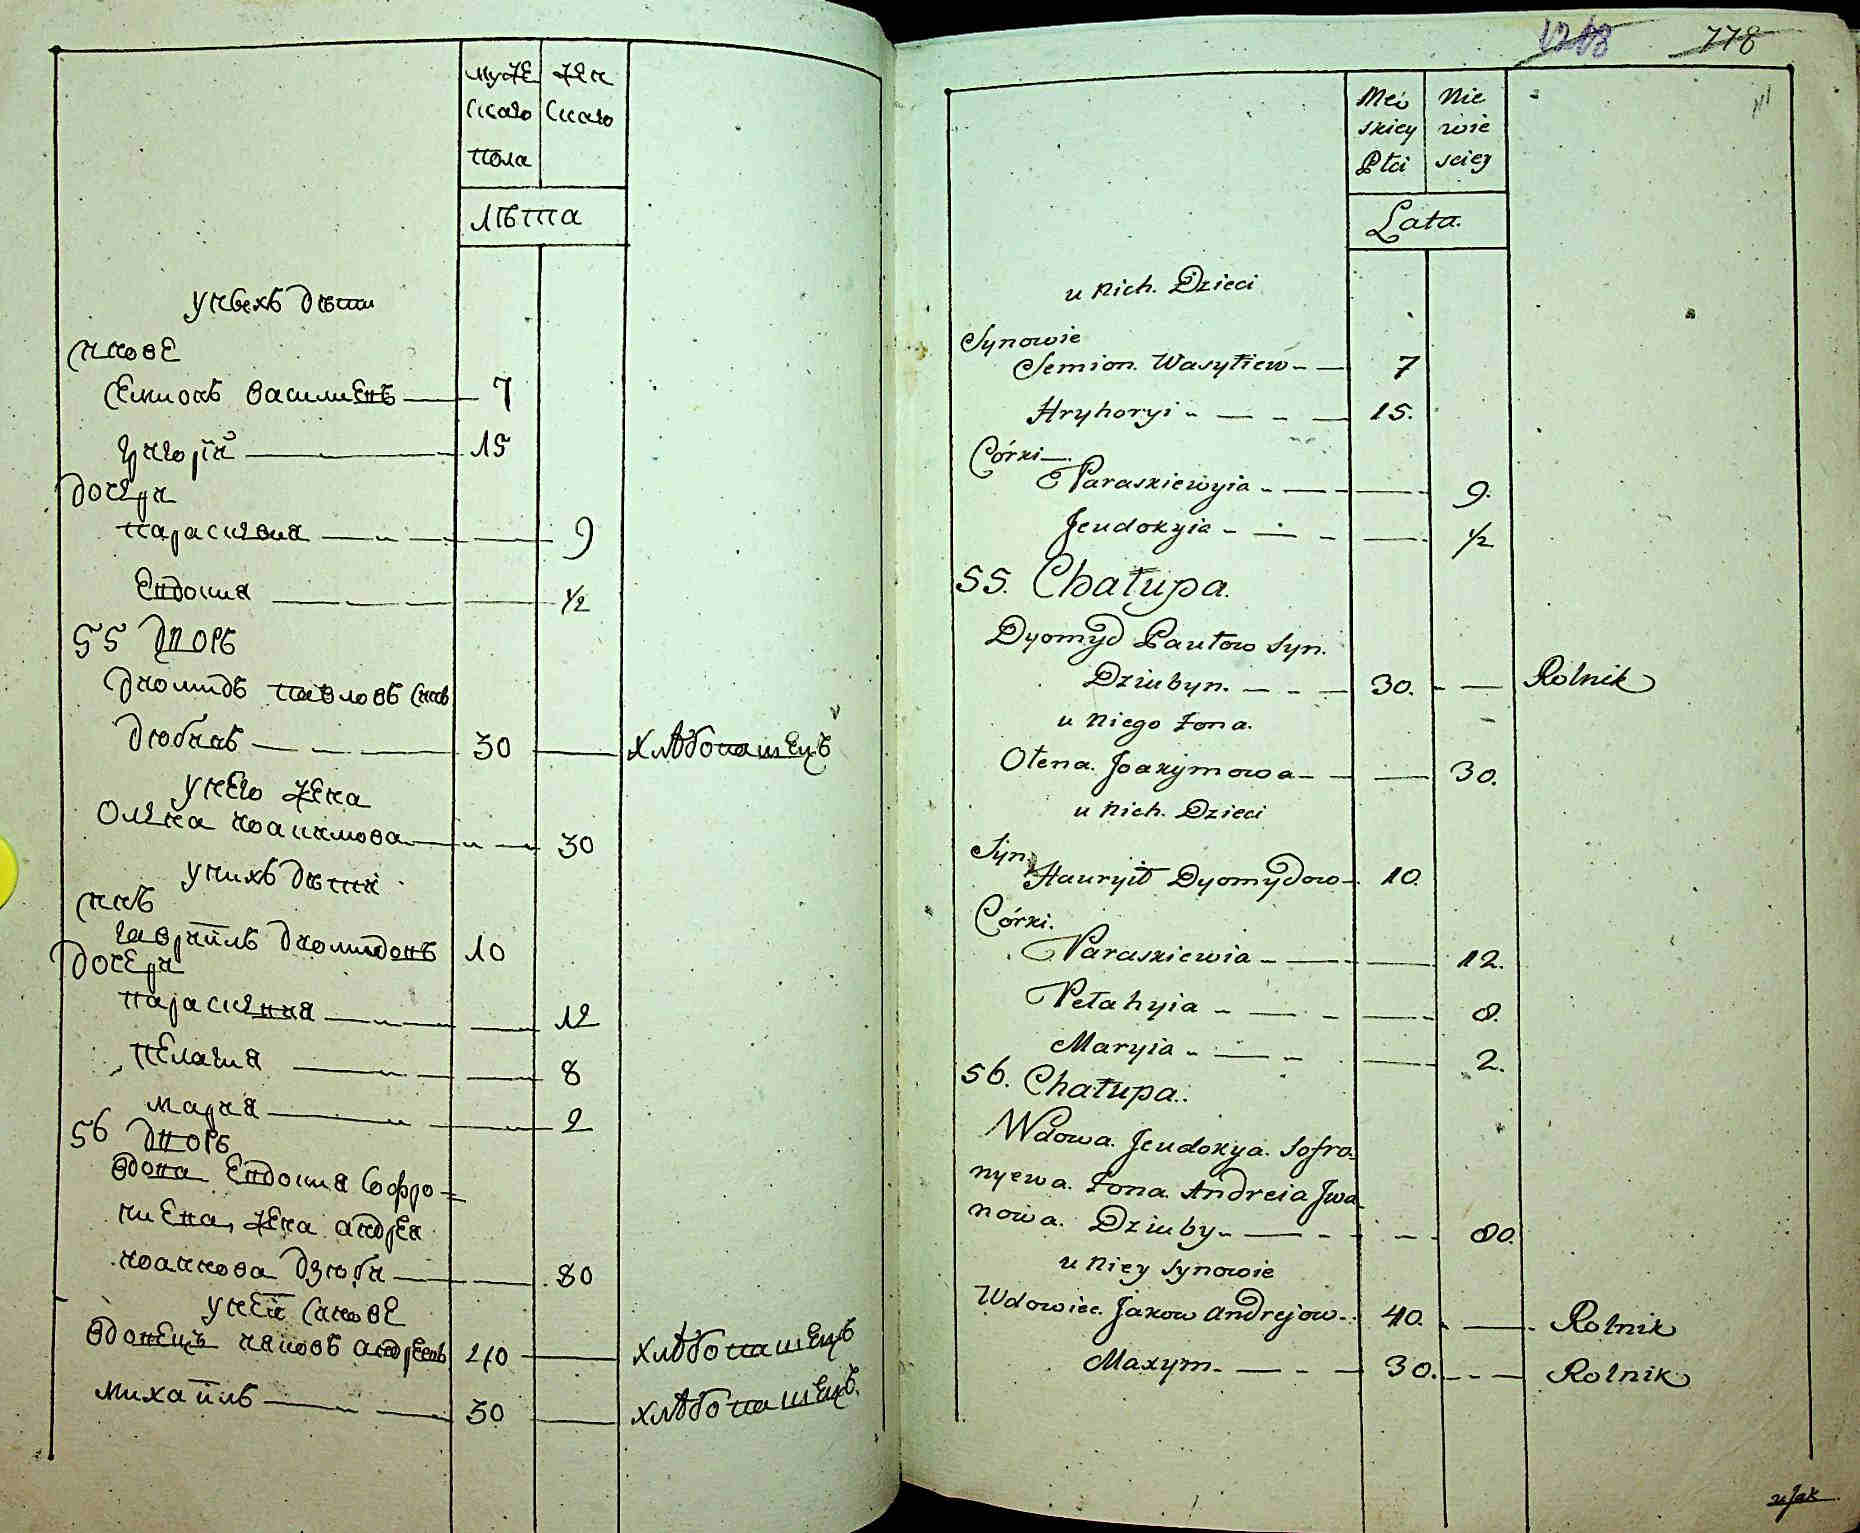 муже
скаго
пола
жен
скаго
лѣта
у нвехъ дѣти
снове
Семионъ василиевъ 7
григорій 15
дочери
параскевия 9
Евдокия 1/2
55 Дворъ
диомидъ павловъ снъ
дюбинъ 30 хлѣбопашецъ
у него жена
Олена иоакимова 30
у нихъ дѣти
снъ
гавриилъ диомидовъ 10
дочери
параскевия 12
пелагия 8
мария 2
56 Дворъ
вдова Евдокия Софро=
ниева, жена андрея
иоаннова дзюби 80
у ней Синове
вдовецъ иаковъ андреевъ 40 хлѣбопашецъ
михаилъ 30 хлѣбопашецъ.
1213 778
Męs
skiey
Płci
Nie
wie
sciey
Lata.
u nich. Dzieci
Synowie
Semion. Wasyliew 7
Hryhoryi 15.
Córki
Paraskiewyia 9.
Jeudokyia 1/2
55. Chałupa.
Dyomyd Pawłow Syn.
Dziubyn. 30. Rolnik
u niego żona.
Ołena. Joakymowa 30.
u nich. Dzieci
Syn
Hauryił Dyomydow 10.
Córki.
Paraskiewia 12.
Pełahyia 8.
Maryia 2.
56. Chałupa.
Wdowa. Jeudokya. Sofro=
nyewa. żona. Andreia Jwa
nowa. Dziuby 80.
u niey Synowie
Wdowiec. Jakow Andrejow 40. Rolnik
Maxym. 30. Rolnik
u Jak